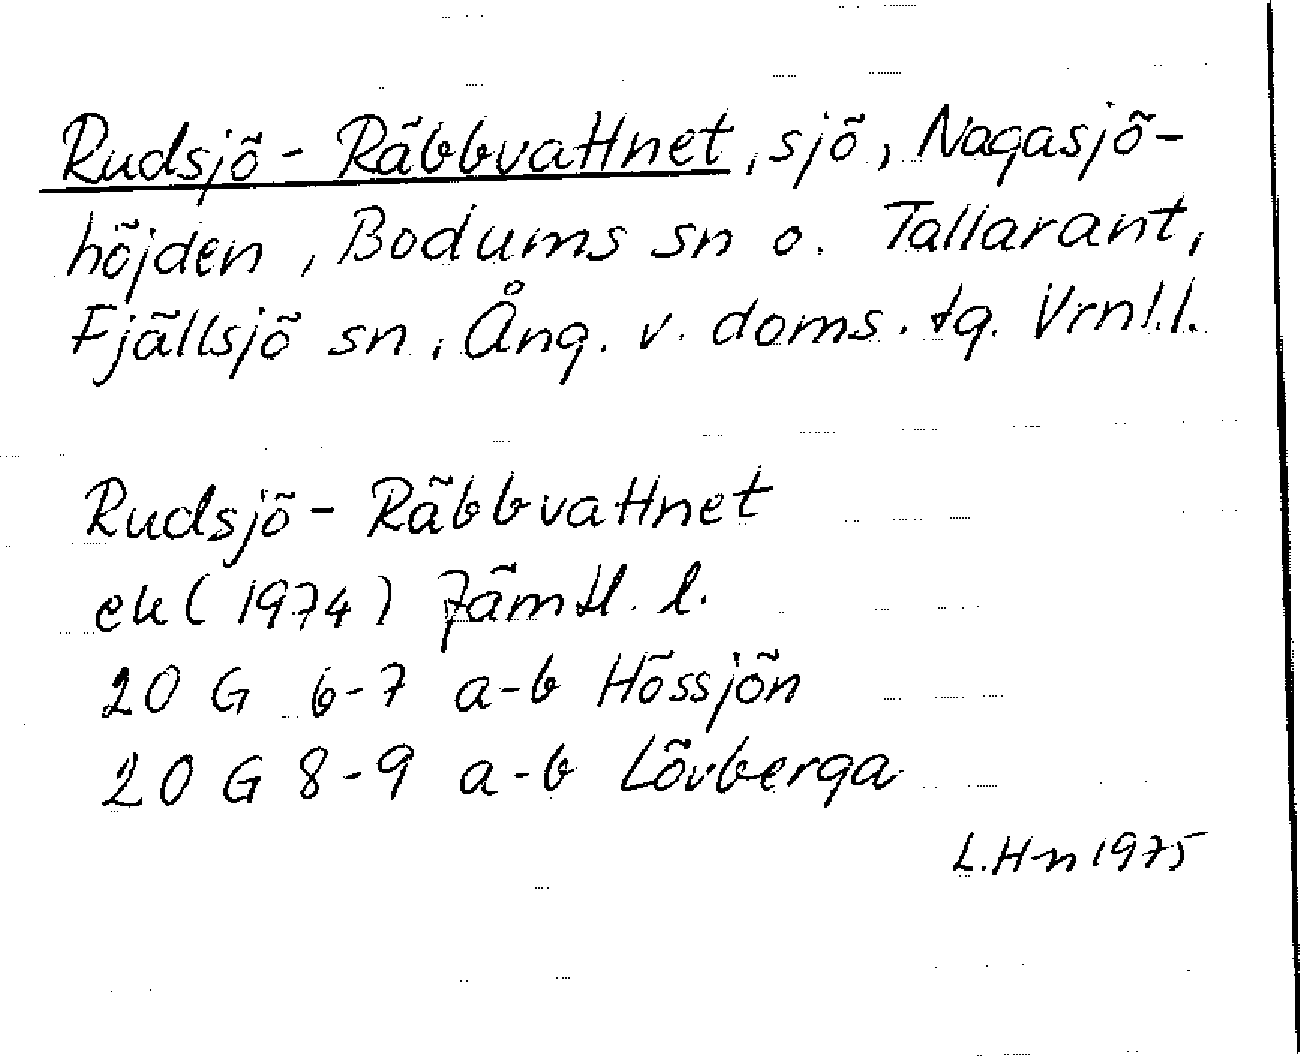 Rudsjö-Räbbvattnet, sjö, Nagasjö-
höjden, Bodums sn o. Tallarant,
Fjällsjö sn, Ång. v. doms. tg. Vrnl.l.
Rudsjö-Räbbvattnet
ek (1974) Jämtl. l.
20 G 6-7 a-b Hössjön
20 G 8-9 a-b Lövberga
L.Hn 1975